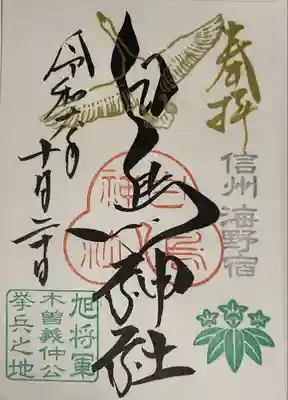 奉拝
信州 海野宿
白鳥神社
白鳥神社
令和六年
十月二十日
旭将軍
木曽義仲公
挙兵之地